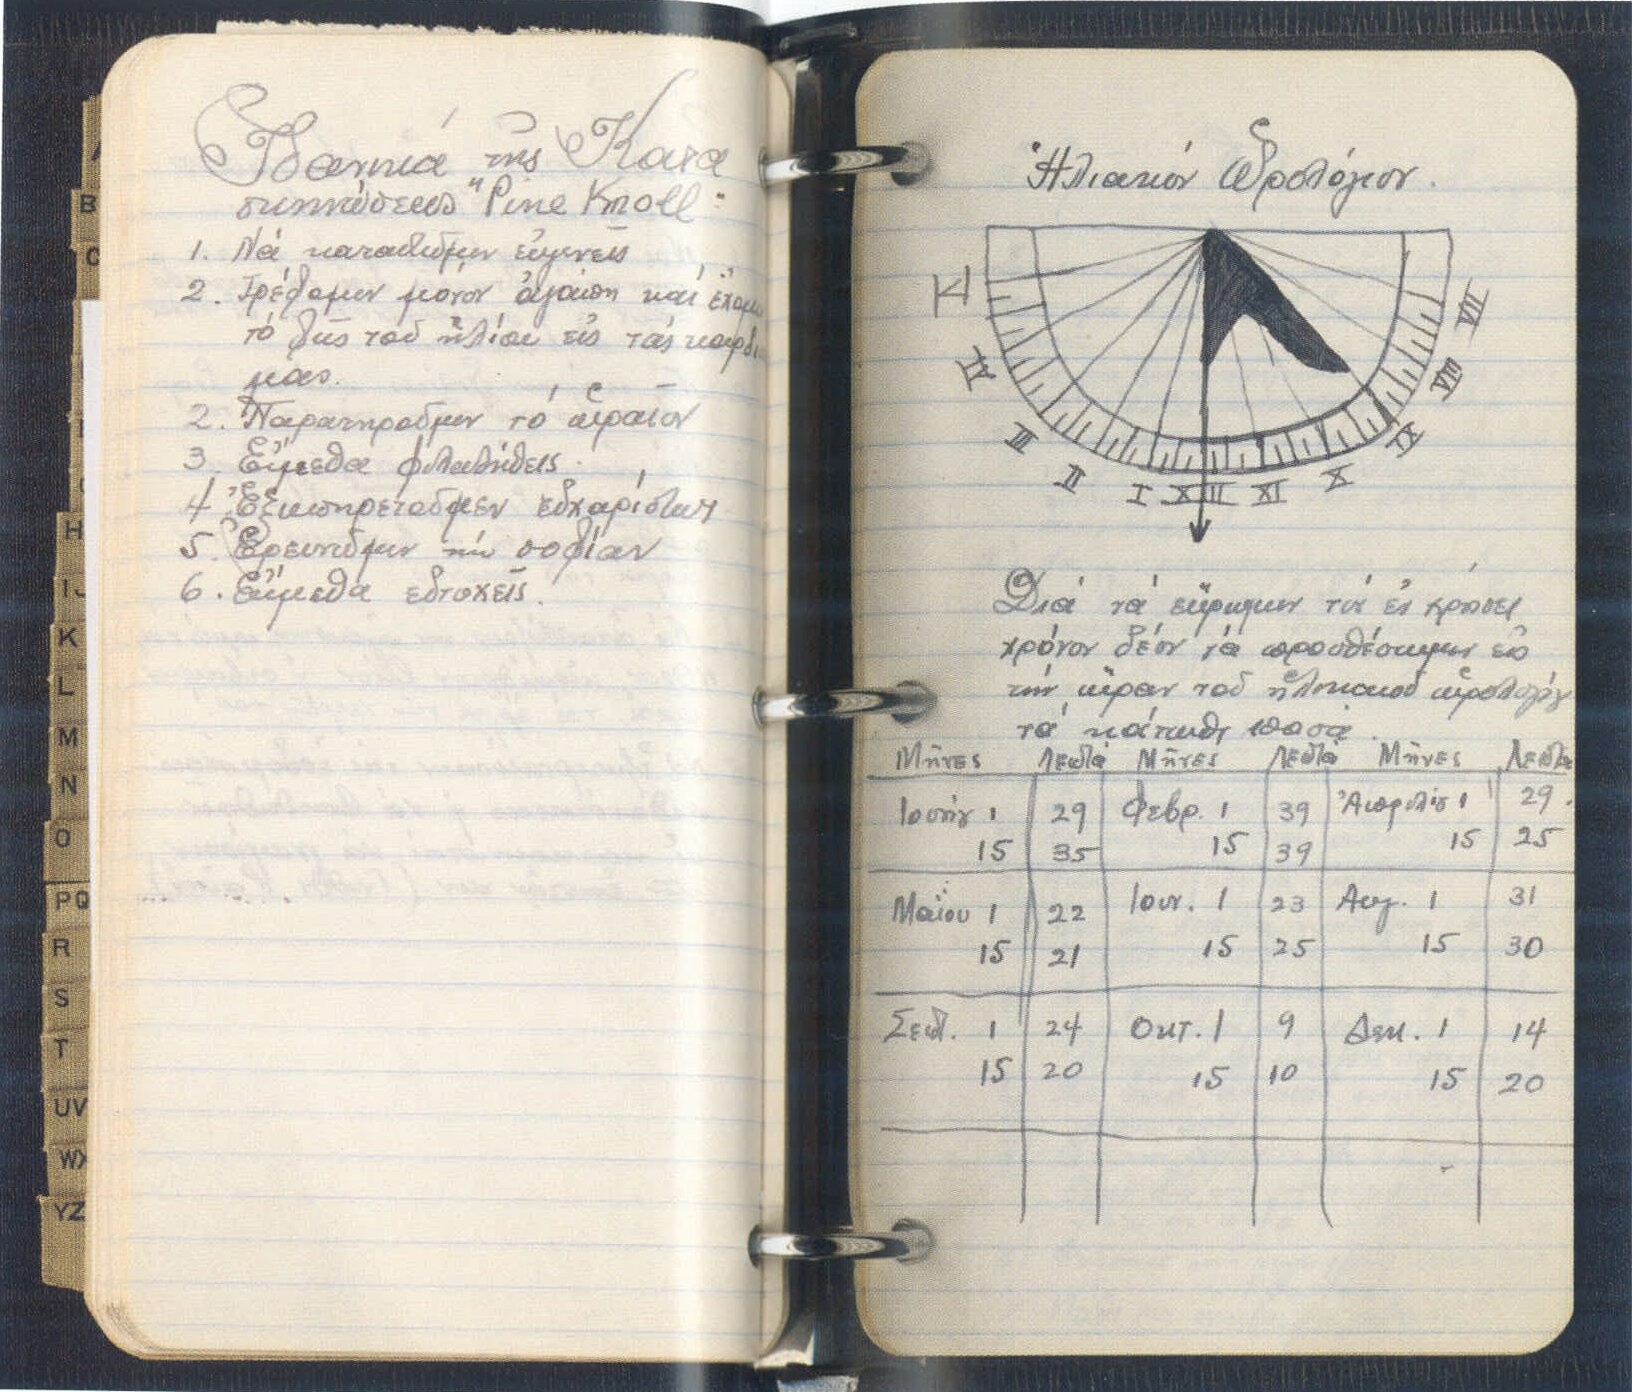 Ἰδανικά τῆς Κατα
σκηνώσεως "Pine Knoll":
1. Νά καταστῶμεν εὐγενεῖς
2. Τρέφομεν μόνον ἀγάπη καί ἔχομε
τό φῶς τοῦ ἡλίου εἰς τάς καρδί
μας.
2. Παρατηροῦμεν τό ὡραῖον
3. Εἴμεθα φιλαλήθεις.
4. Ἐξυπηρετοῦμεν εὐχαρίστως
5. Ἐρευνῶμεν τήν σοφίαν
6. Εἴμεθα εὐτυχεῖς.
A
B
C
H
IJ
K
L
M
N
O
PQ
R
S
T
UV
WX
YZ
Ἡλιακόν Ὡρολόγιον.
VII
VIII
IX
III
II I XII XI X
Διά νά εὕρωμεν τόν ἐν χρήσει
χρόνον δέον νά προσθέσωμεν εἰς
τήν ὥραν τοῦ ἡλιακοῦ ὡρολογίου
τά κάτωθι ποσά.
Μῆνες Λεπτά Μῆνες Λεπτά Μῆνες Λεπτά
1 29 Φεβρ. 1 39 Ἀπριλίου 1 29.
15 35 15 39 15 25
Μαΐου 1 22 Ιουν. 1 23 Αυγ. 1 31
15 21 15 25 15 30
Σεπ. 1 24 Οκτ. 1 9 Δεκ. 1 14
15 20 15 10 15 20